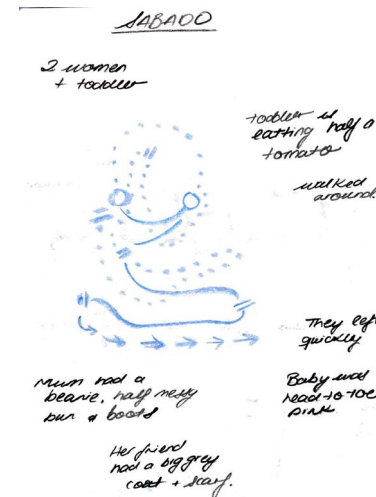 SABADO
2 women
+ toddler
toddler is
eatting half a
tomato
walked
around.
They left
quickly
Mum had a
beanie, half messy
bun & boots
Baby was
head to toe
pink
Her friend
had a big grey
coat + scarf.